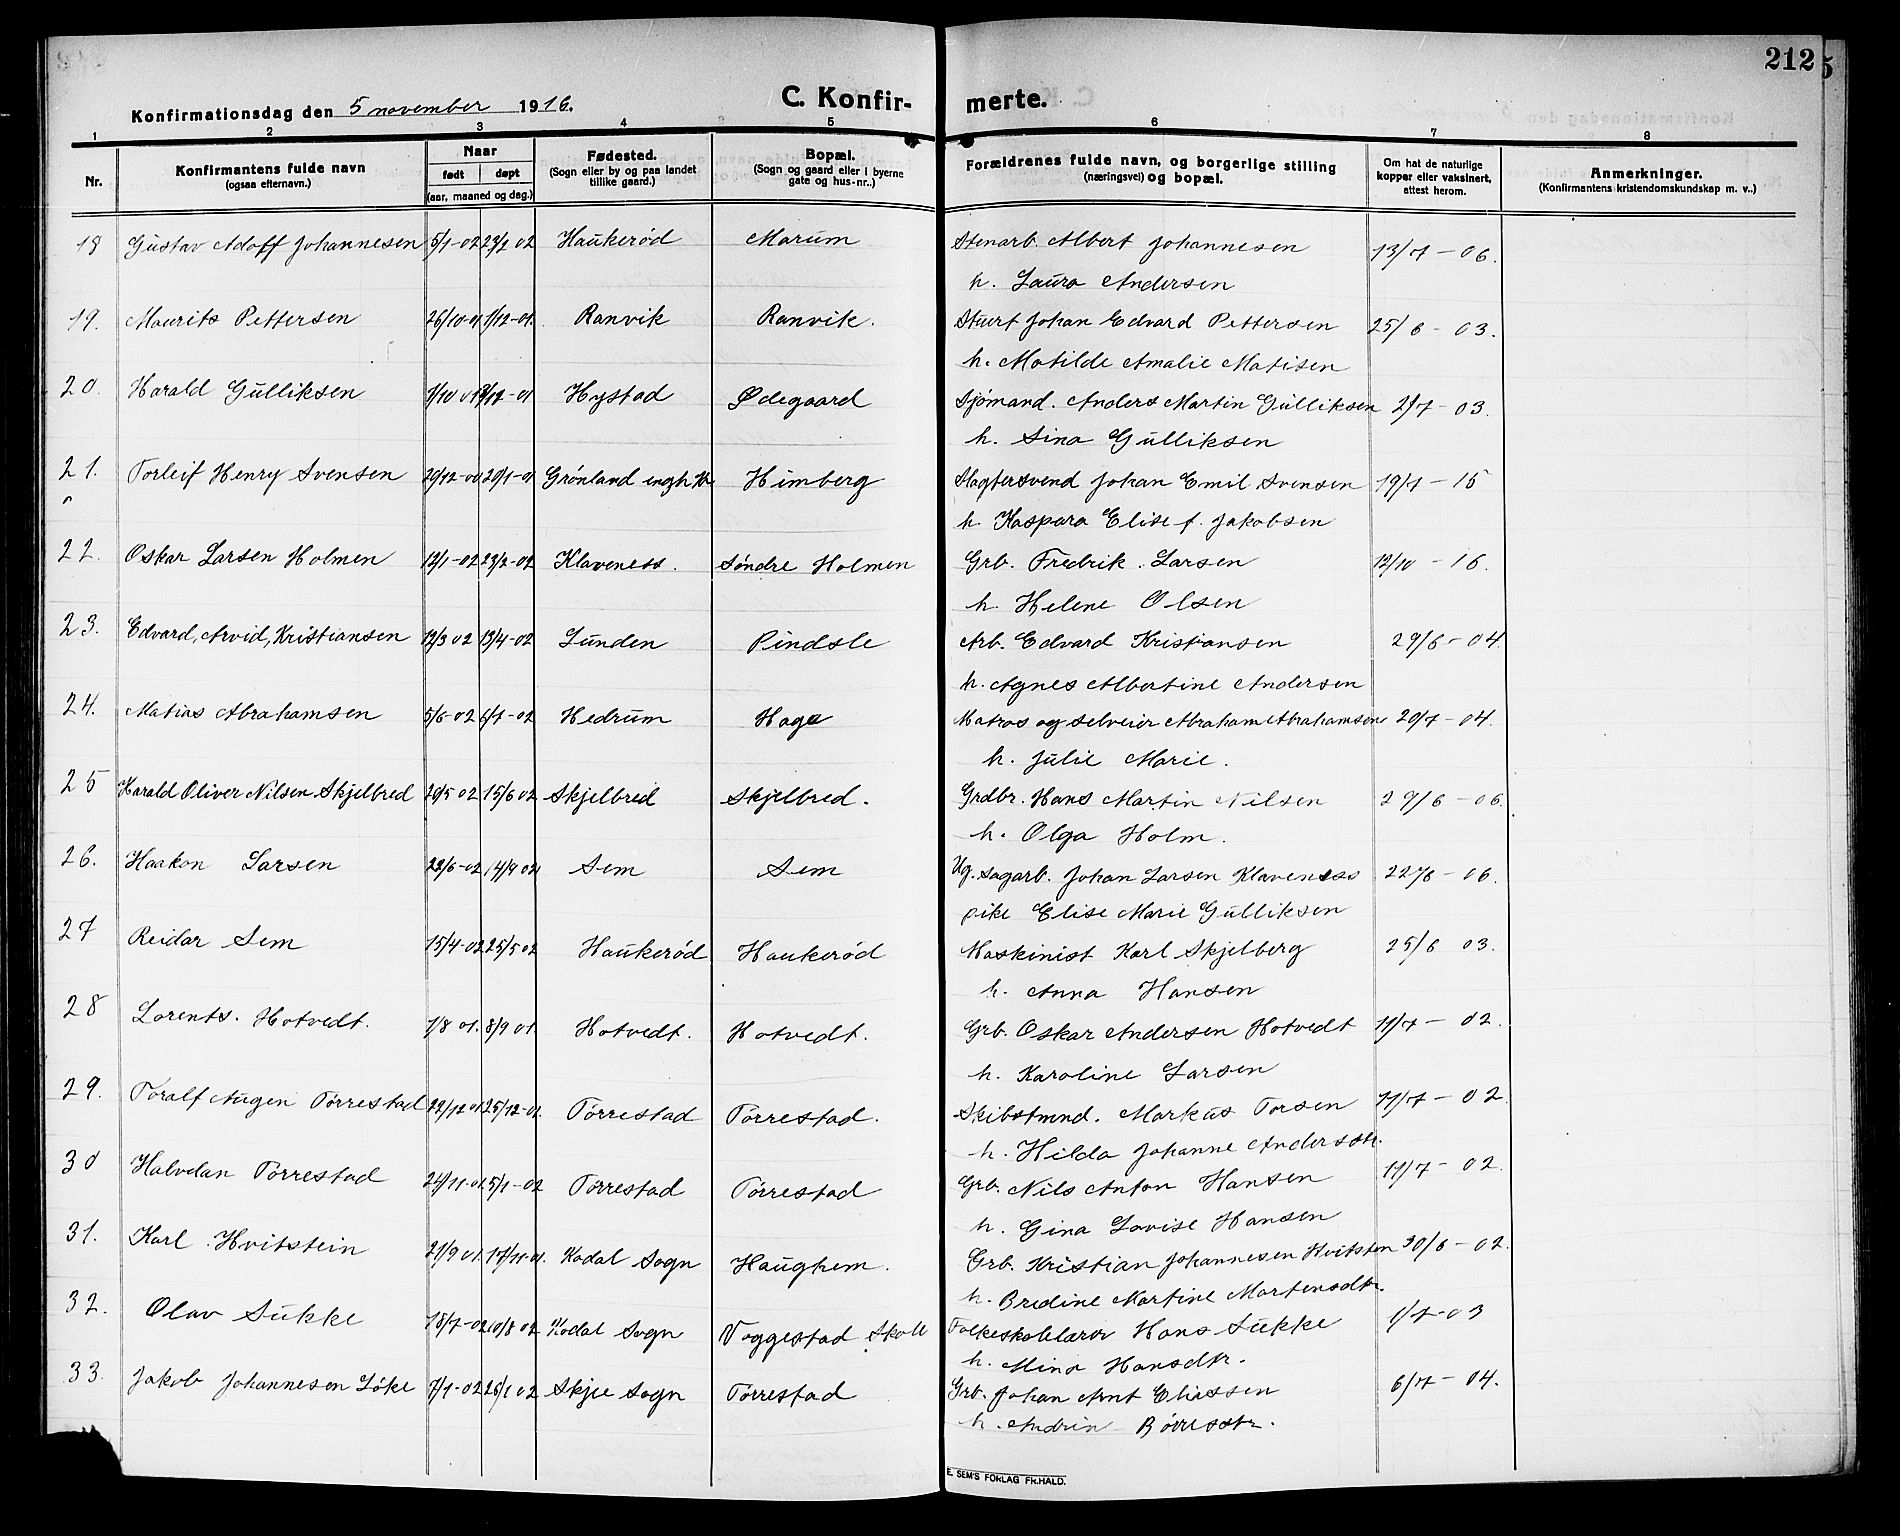 212
Konfirmationsdag den 5 november 1916.
C. Konfir- merte.
1 2 3 4 5 6 7 8
Nr.
Konfirmantens fulde navn
(ogsaa efternavn.)
Naar
født døpt
(aar, maaned og dag.)
Fødested.
(Sogn eller by og paa landet
tillike gaard.)
Bopæl.
(Sogn og gaard eller i byerne
gate og hus-nr..)
Forældrenes fulde navn, og borgerlige stilling
(næringsvei) og bopæl.
Om hat de naturlige
kopper eller vaksinert,
attest herom.
Anmerkninger.
(Konfirmantens kristendomskundskap m. v..)
18 Gustav Adolf Johannesen 5/1-02 23/2 02 Haukerød Marum Stenarb. Albert Johannesen 13/7-06.
h. Laura Andersen
19. Maurits Pettersen 26/10-01 1/12-01. Ranvik Ranvik. Stuert Johan Edvard Pettersen 25/6-03.
h. Matilde Amalie Matisen
20. Harald Gulliksen 1/10 01 /12-01 Hystad Ødegaard Sjømand. Anders Martin Gulliksen 2/7-03.
h. Sina Gulliksen
21. Torleif Henry Svensen 29/12-00 20/1-01 Grønland Himberg Slagtersvend Johan Emil Svensen 19/7-15
h. Kaspara Elise f. Jakobsen
22. Oskar Larsen Holmen 12/1-02 23/2-02 Klaveness. Søndre Holmen Grb. Fredrik. Larsen 12/10-16.
h. Helene Olsen
23. Edvard, Arvid, Kristiansen 12/3 02 13/4-02 Lunden Pindsle Arb. Edvard Kristiansen 29/6-04
h. Agnes Albertine Andersen
24. Matias Abrahamsen 5/6-02 6/7-02 Hedrum Haga Matros og selveier Abraham Abrahamsen 20/7-04.
h. Julie Marie.
25 Harald Oliver Nilsen Skjelbred 20/5 02 15/6 02 Skjelbred Skjelbred. Grdbr. Hans Martin Nilsen 29/6-06.
h. Olga Holm.
26. Haakon Larsen 22/6-02 14/9 02 Sem Sem Ug. sagarb. Johan Larsen Klaveness 22/6-06.
pike Elise Marie Gulliksen
27 Reidar Sem 15/4-02 25/5 02 Haukerød Haukerød Maskinist Karl Skjelberg 25/6 03.
h. Anna Hansen
28 Lorents. Hotvedt. 1/8 01. 8/9 01. Hotvedt. Hotvedt. Grb. Oskar Andersen Hotvedt 11/7-02.
h. Karoline Larsen
29. Toralf Augen Tørrestad 22/12 01 25/12-01. Tørrestad Tørrestad. Skibstmnd. Markus Torsen 11/7-02
h. Hilda Johanne Andersdtr.
30 Halvdan Tørrestad 24/11-01. 5/1-02 Tørrestad Tørrestad Grb. Nils Anton Hansen 11/7-02.
h. Gina Lovise Hansen
31. Karl. Hvitstein 21/9 01. 17/11-01. Kodal Sogn Haughem. Grb. Kristian Johannesen Hvitsten 30/6-02.
h. Bredine Martine Martensdtr.
32. Olav Sukke 18/7-02 10/8 02 Kodal Sogn Voggestad Skole Folkeskolelærer Hans Sukke 1/7-03
h. Mina Hansdtr.
33. Jakob Johannesen Løke 7/1-02 26/1 02 Skjee Sogn Tørrestad Grb. Johan Arnt Eliassen 6/7-04.
h. Andrin Børresdtr.
E. SEM'S FORLAG FR.HALD.